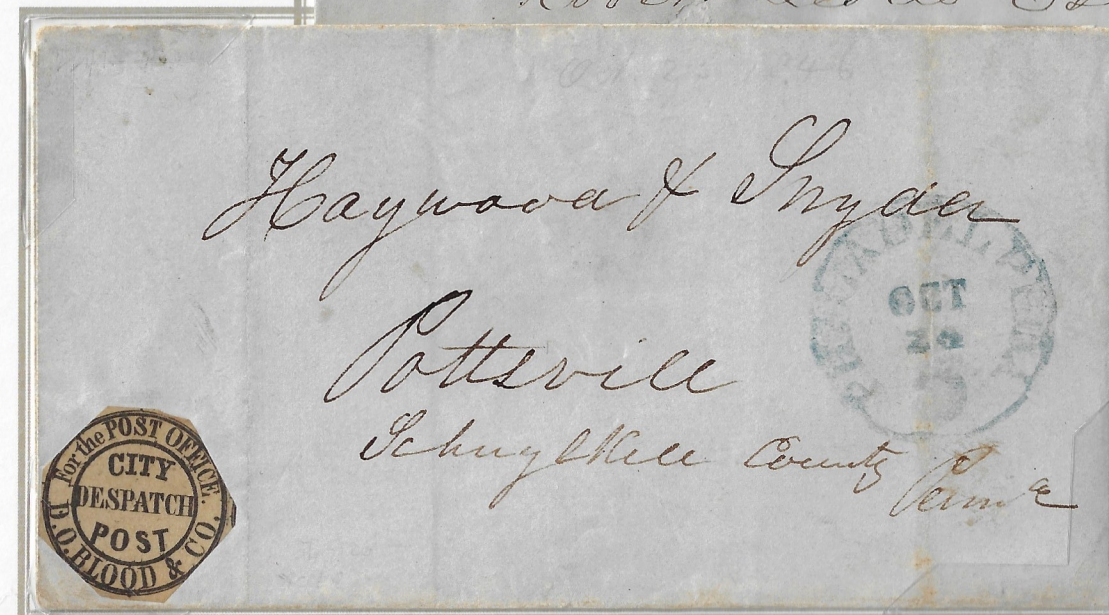 Haywood & Snyder
Pottsvill
Schuylkill County
Penna
PHILADELPHIA
OCT
24
5
For the POST OFFICE.
CITY
DESPATCH
POST
D.O.BLOOD & CO.